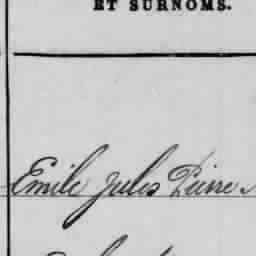 ET SURNOMS.
Emile Jules Pierre